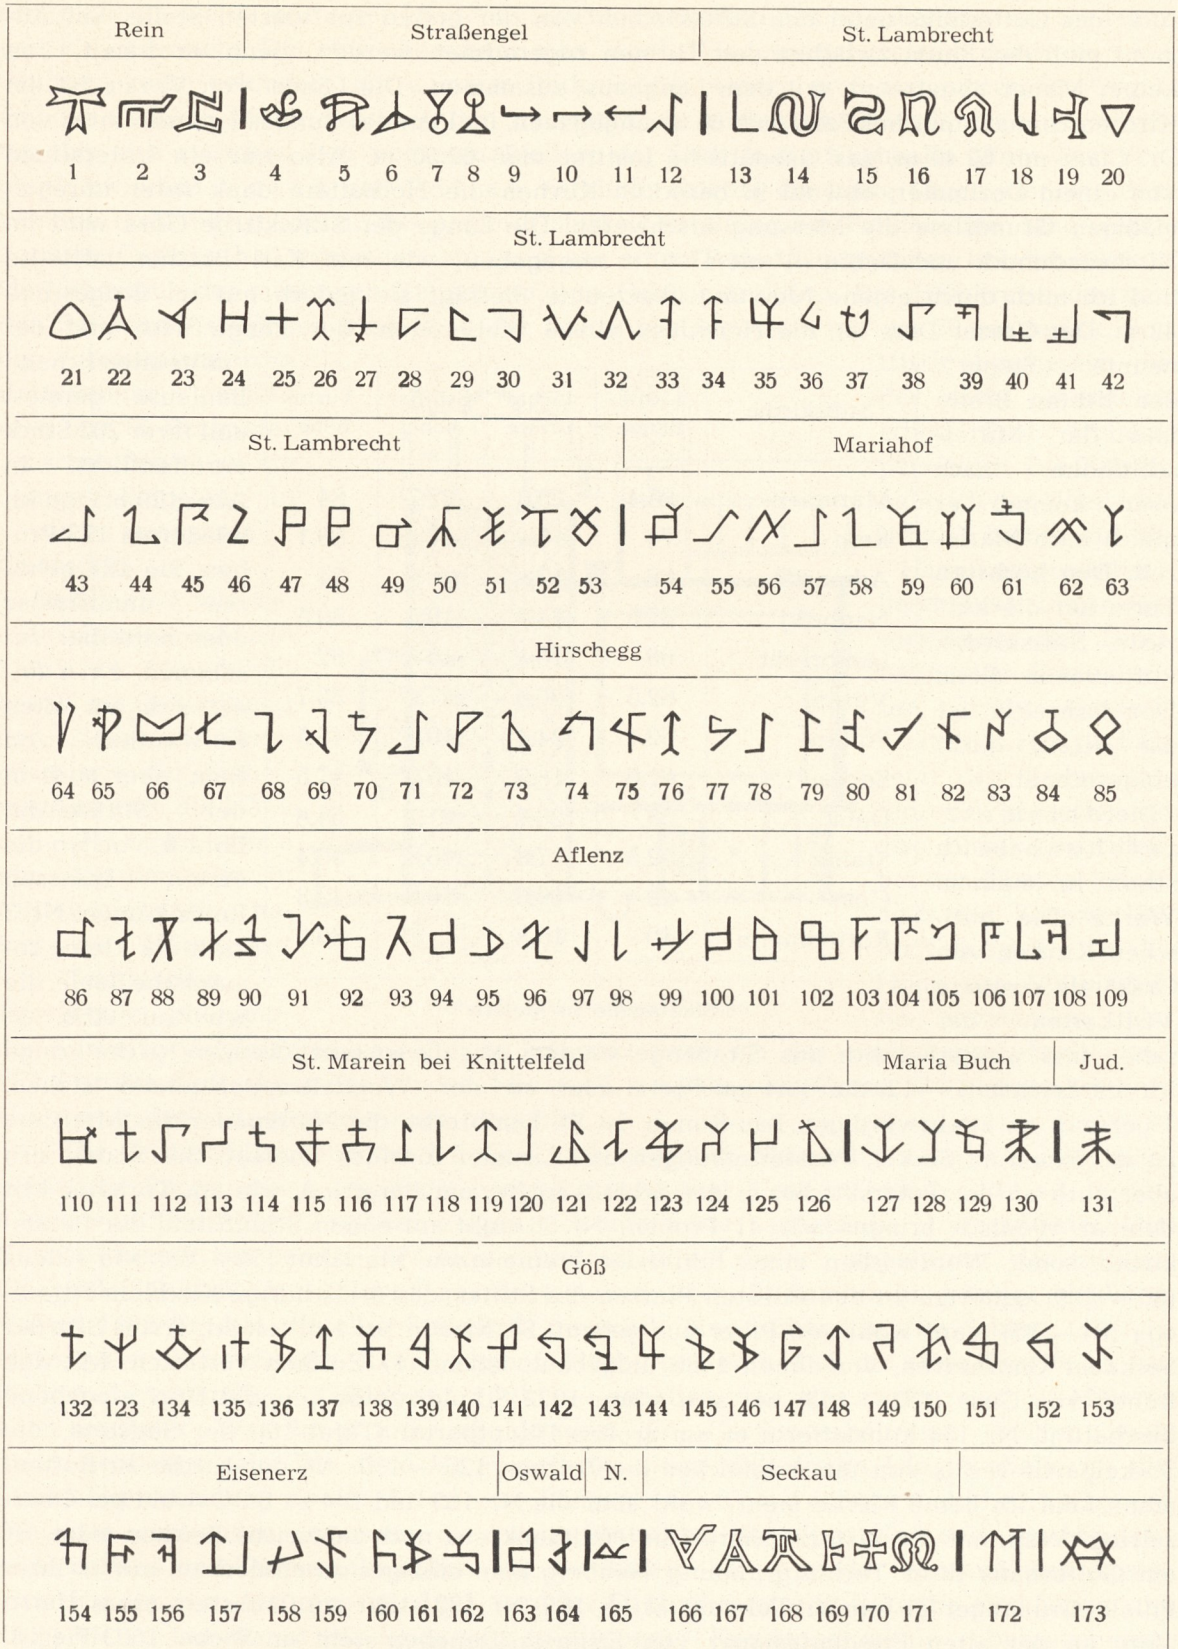 Rein Straßengel St. Lambrecht
1 2 3 4 5 6 7 8 9 10 11 12 13 14 15 16 17 18 19 20
St. Lambrecht
21 22 23 24 25 26 27 28 29 30 31 32 33 34 35 36 37 38 39 40 41 42
St. Lambrecht Mariahof
43 44 45 46 47 48 49 50 51 52 53 54 55 56 57 58 59 60 61 62 63
Hirschegg
64 65 66 67 68 69 70 71 72 73 74 75 76 77 78 79 80 81 82 83 84 85
Aflenz
86 87 88 89 90 91 92 93 94 95 96 97 98 99 100 101 102 103 104 105 106 107 108 109
St. Marein bei Knittelfeld Maria Buch Jud.
110 111 112 113 114 115 116 117 118 119 120 121 122 123 124 125 126 127 128 129 130 131
Göß
132 123 134 135 136 137 138 139 140 141 142 143 144 145 146 147 148 149 150 151 152 153
Eisenerz Oswald N. Seckau
154 155 156 157 158 159 160 161 162 163 164 165 166 167 168 169 170 171 172 173